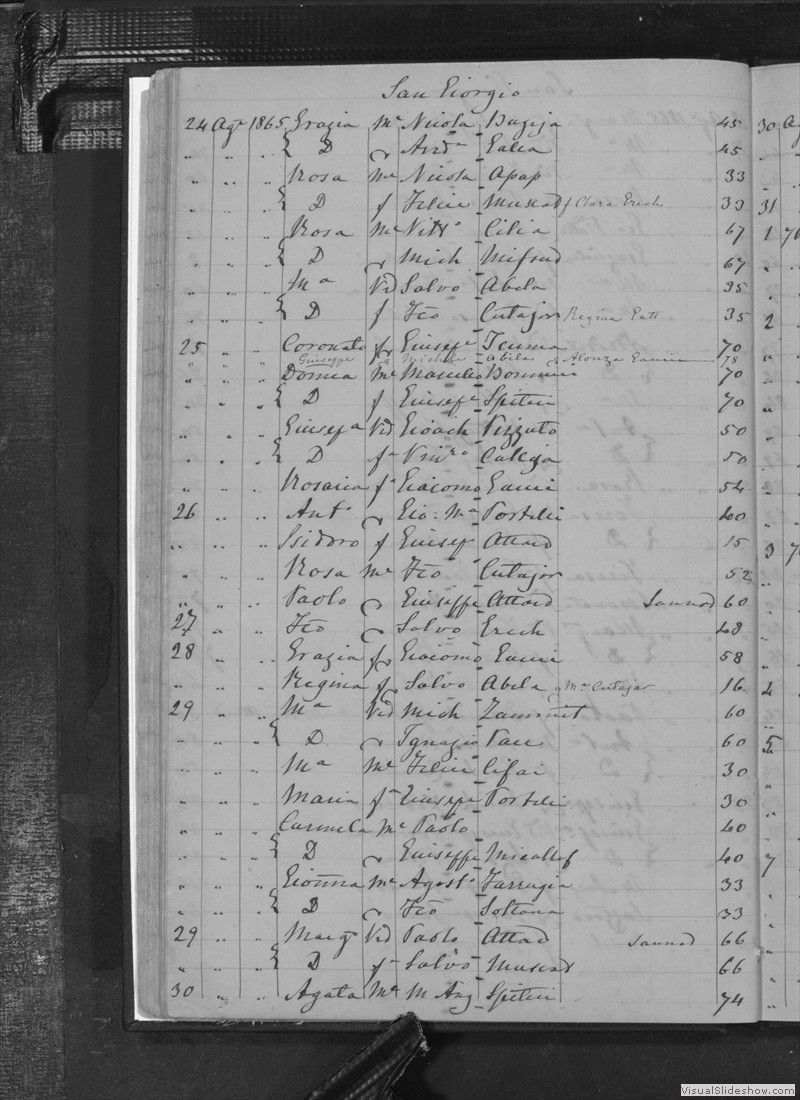 San Giorgio
24 Agº 1865 Grazia Mᵉ Nicola Bugeja 45
" " " { D Andª Galea 45
" " " Rosa Mᵉ Nicola Apap 33
" " " { D f Felice Muscat f Clara Grech 33
" " " Rosa Mᵉ Vittº Cilia 67
" " " { D Mich Mifsud 67
" " " Mª Vd Salvo Abela 35
" " " { D f Fco Cutajar Regina 35
25 " " Coronato f Giusepe 70
" " " Giuseppe Abela 78
" " " Mᵉ 70
" " " { D f Giusepe Spiteri 70
" " " Giusepª Vd Gioach Pizzuto 50
" " " { D f Calleja 50
" " " Rosaria f Giacomo Gauci 54
26 " " Antº Gio: Mª Portelli 40
" " " Isidoro f Giusep Attard 15
" " " Rosa Mᵉ Fco Cutajar 52
" " " Paolo Giuseppe Attard Sannat 60
27 " " Fco Salvo Grech 48
28 " " Grazia f Giacomo Gauci 58
" " " Regina f Salvo Abela Mª Cutajar 16
29 " " Mª Vd Mich Zammit 60
" " " { D Ignazio Pace 60
" " " Mª Mᵉ Felice Cefai 30
" " " Maria f Giusepe Portelli 30
" " " Carmela Mᵉ Paolo 40
" " " { D Giuseppe Micallef 40
" " " Mᵉ Agostº Farrugia 33
" " " { D Fco Soltana 33
29 " " Vd Paolo Attard Sannat 66
" " " { D f Salvo Muscat 66
30 " " Agata Mᵉ M Ang Spiteri 74
30
31
1
2
3
4
5
7
VisualSlideshow.com